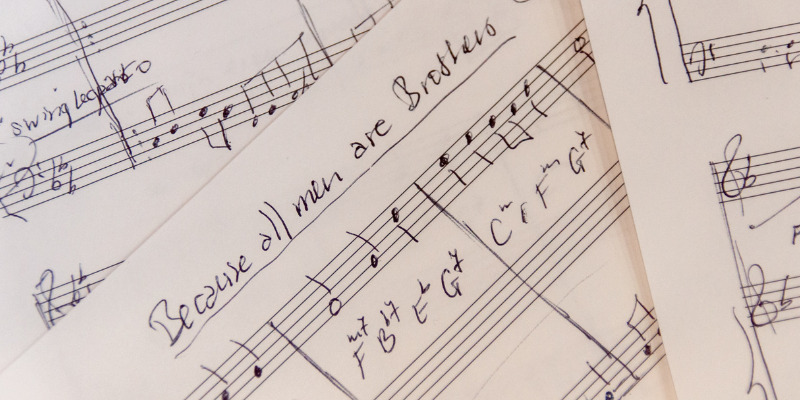 swing legato
Because all men are Brothers
Fm7 Bb7 Eb G7
Cm Fm G7